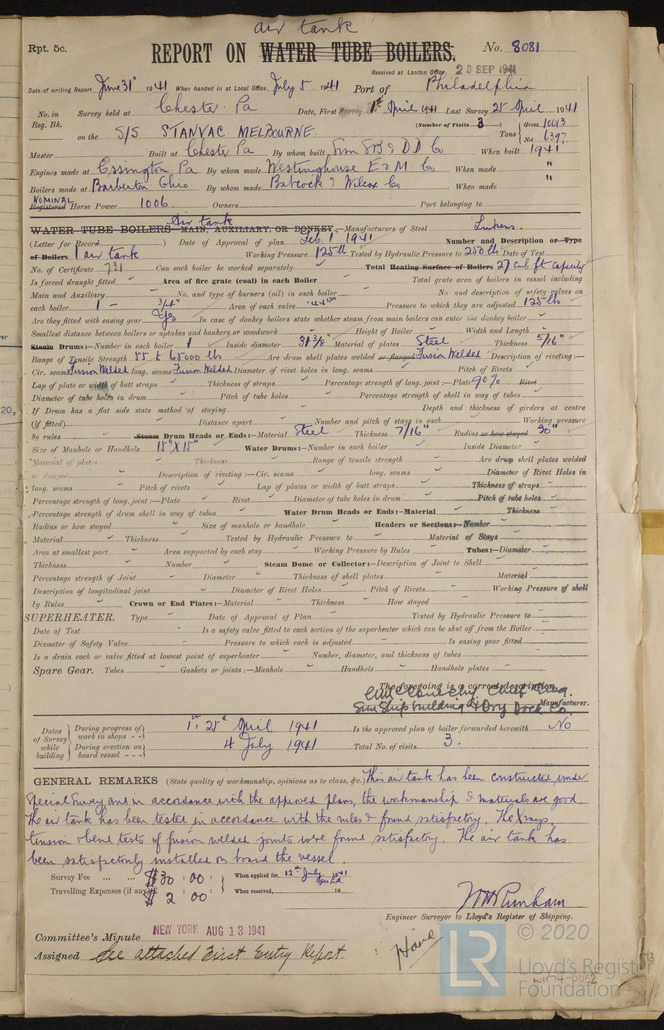 air tank
Rpt. 5c.
REPORT ON WATER TUBE BOILERS. No. 8081
Received at London Office 23 SEP 1941
Date of writing Report June 31st 1941 When handed in at Local Office July 5 1941 Port of Philadelphia
No. in Survey held at Chester Pa Date, First Survey 1st April 1941 Last Survey 25 April 1941
Reg. Bk. (Number of Visits 3)
on the S/S. STANVAC MELBOURNE. Tons Gross 10013 Net 6397
Master Built at Chester Pa By whom built Sun S B & D D Co When built 1941
Engines made at Essington, Pa By whom made Westinghouse E & M. Co When made "
Boilers made at Barberton Ohio By whom made Babcock & Wilcox Co When made "
NOMINAL
Registered Horse Power 1006. Owners Port belonging to
Air tank
WATER TUBE BOILERS MAIN, AUXILIARY, OR DONKEY.—Manufacturers of Steel Lukens.
(Letter for Record) Date of Approval of plan Feb. 1 1941 Number and Description or Type
of Boilers 1 air tank Working Pressure 125 lb Tested by Hydraulic Pressure to 250 lbs Date of Test
No. of Certificate 731 Can each boiler be worked separately Total Heating Surface of Boilers 27 cub ft capacity
Is forced draught fitted Area of fire grate (coal) in each Boiler Total grate area of boilers in vessel including
Main and Auxiliary No. and type of burners (oil) in each boiler No. and description of safety valves on
each boiler 1 – 3/4" Area of each valve .44 Pressure to which they are adjusted 125 lbs
Are they fitted with easing gear Yes In case of donkey boilers state whether steam from main boilers can enter the donkey boiler
Smallest distance between boilers or uptakes and bunkers or woodwork Height of Boiler Width and Length
Steam Drums:—Number in each boiler 1 Inside diameter 31 3/8" Material of plates Steel Thickness 5/16"
Range of Tensile Strength 55 to 65000 lbs Are drum shell plates welded or flanged Fusion Welded Description of riveting:—
Cir. seams Fusion Welded long. seams Fusion Welded Diameter of rivet holes in long. seams Pitch of Rivets
Lap of plate or width of butt straps Thickness of straps Percentage strength of long. joint:—Plate 90% Rivet
Diameter of tube holes in drum Pitch of tube holes Percentage strength of shell in way of tubes
If Drum has a flat side state method of staying Depth and thickness of girders at centre
(if fitted) Distance apart Number and pitch of stays in each Working pressure
by rules Steam Drum Heads or Ends:—Material Steel Thickness 7/16" Radius or how stayed 30"
Size of Manhole or Handhole 15" X 15" Water Drums:—Number in each boiler Inside Diameter
Material of plates Thickness Range of tensile strength Are drum shell plates welded
or flanged Description of riveting:—Cir. seams long. seams Diameter of Rivet Holes in
long. seams Pitch of rivets Lap of plates or width of butt straps Thickness of straps
Percentage strength of long. joint:—Plate Rivet Diameter of tube holes in drum Pitch of tube holes
Percentage strength of drum shell in way of tubes Water Drum Heads or Ends:—Material Thickness
Radius or how stayed Size of manhole or handhole Headers or Sections:—Number
Material Thickness Tested by Hydraulic Pressure to Material of Stays
Area at smallest part Area supported by each stay Working Pressure by Rules Tubes:—Diameter
Thickness Number Steam Dome or Collector:—Description of Joint to Shell
Percentage strength of Joint Diameter Thickness of shell plates Material
Description of longitudinal joint Diameter of Rivet Holes Pitch of Rivets Working Pressure of shell
by Rules Crown or End Plates:—Material Thickness How stayed
SUPERHEATER. Type Date of Approval of Plan Tested by Hydraulic Pressure to
Date of Test Is a safety valve fitted to each section of the superheater which can be shut off from the Boiler
Diameter of Safety Valve Pressure to which each is adjusted Is easing gear fitted
Is a drain cock or valve fitted at lowest point of superheater Number, diameter, and thickness of tubes
Spare Gear. Tubes Gaskets or joints:—Manhole Handhole Handhole plates
The foregoing is a correct description,
Chief Eng.
Sun Shipbuilding & Dry Dock Co. Manufacturer.
Dates of Survey while building
During progress of work in shops - - 1st. 25th April 1941 Is the approved plan of boiler forwarded herewith No
During erection on board vessel - - - 4 July 1941 Total No. of visits 3.
GENERAL REMARKS (State quality of workmanship, opinions as to class, &c.) This air tank has been constructed under
Special Survey and in accordance with the approved plans, the workmanship & materials are good.
The air tank has been tested in accordance with the rules & found satisfactory. The Xrays,
tension & bend tests of fusion welded joints were found satisfactory. The air tank has
been satisfactorily installed on board the vessel.
Survey Fee ... ... $30 : 00 : When applied for, 12th July 1941
Travelling Expenses (if any) $ 2 : 00 : When received, 19
Engineer Surveyor to Lloyd's Register of Shipping.
Committee's Minute NEW YORK AUG 13 1941
Assigned See attached First Entry Report.
LR © 2020
Lloyd's Register
Foundation
20,